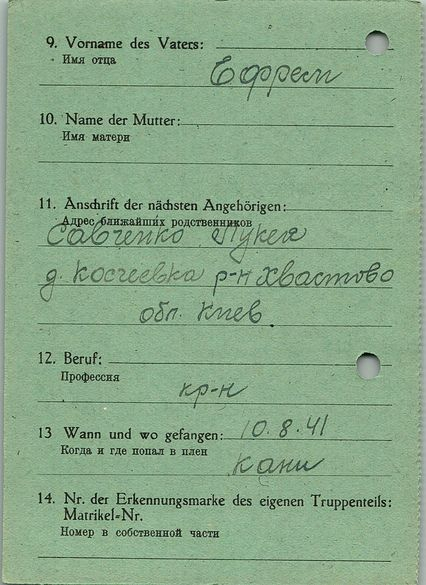 9. Vorname des Vaters:
Имя отца
Ефрем
10. Name der Mutter:
Имя матери
11. Anschrift der nächsten Angehörigen:
Адрес ближайших родственников
Савченко Лукея
д. Косчеевка р-н Хвастово
обл. Киев
12. Beruf:
Профессия
кр-н
13 Wann und wo gefangen: 10.8.41
Когда и где попал в плен
Кани
14. Nr. der Erkennungsmarke des eigenen Truppenteils:
Matrikel-Nr.
Номер в собственной части